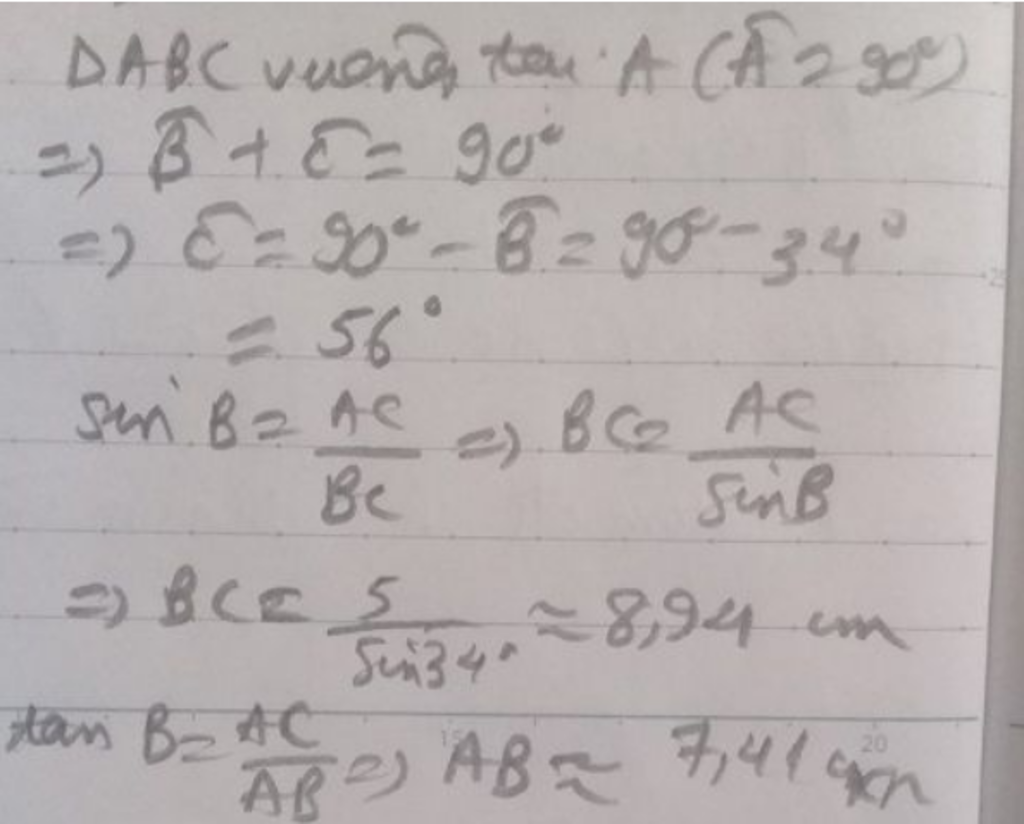 ΔABC vuông tại A (Â = 90°)
=> B̂ + Ĉ = 90°
=> Ĉ = 90° - B̂ = 90° - 34°
= 56°
sin B = AC/BC => BC = AC/sinB
=> BC = 5/sin34° ≈ 8,94 cm
tan B = AC/AB => AB ≈ 7,41 cm
20